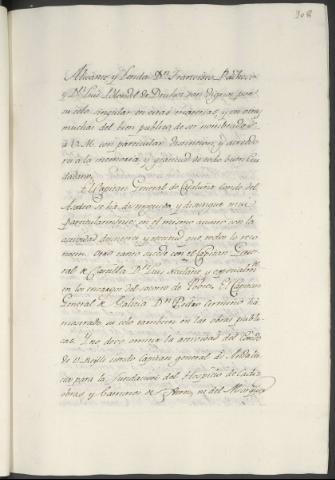 308
Alicante y Ronda Dn. Francisco Pacheco
y Dn. Luis Urbel de Drusbec son dignos por
su celo singular en estas materias, y en otras
muchas del bien publico, de ser nombrados
á V.M. con particular distincion, y acredo-
res á la memoria y gratitud de todo buen Ciu-
dadano.
El Capitan General de Cataluña Conde del
Asalto se ha distinguido y distingue mui
particularmente en el mismo asunto con la
actividad, desinteres y rectitud que todos le reco-
nocen. Otro tanto sucede con el Capitan Gene-
ral de Castilla Dn. Luis Nieulant, y especialmte.
en los encargos del socorro de Pobres. El Capitan
General de Galicia Dn. Pedro Cermeño ha
mostrado su celo tambien en las obras publi-
cas. Y no devo omitir la actividad del Conde
de O-Reylli siendo Capitan general de Andalu-
cia para la fundacion del Hospicio de Cadiz
obras y Caminos de Xerez, ni del Marques